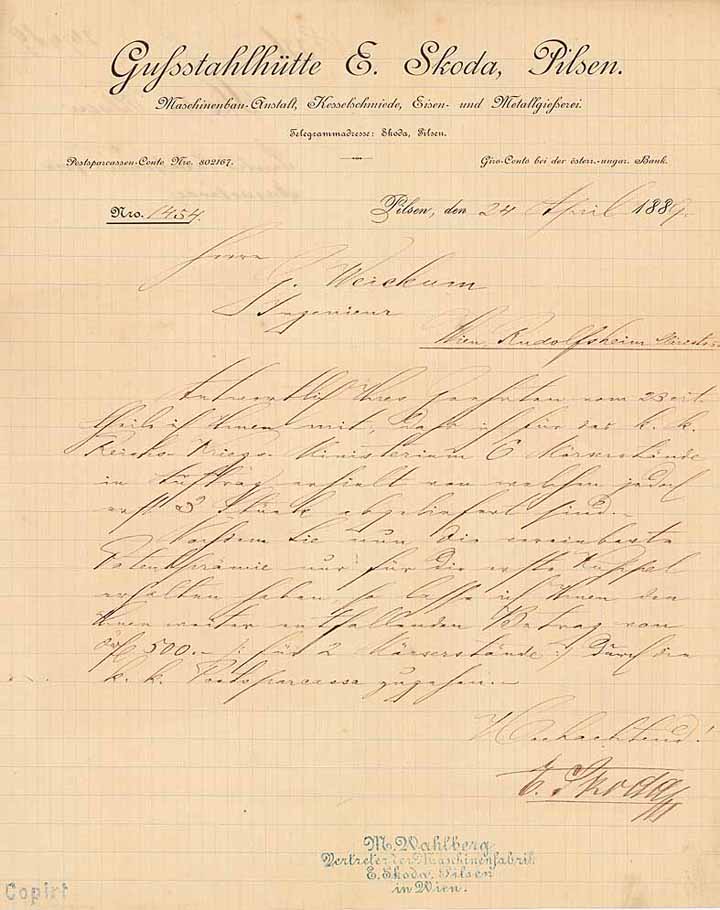 Gußstahlhütte E. Skoda, Pilsen.
Maschinenbau-Anstalt, Kesselschmiede, Eisen- und Metallgießerei.
Telegrammadresse: Skoda, Pilsen.
Postsparcassen-Conto Nro. 802167.
Giro-Conto bei der österr.-ungar. Bank.
Nro. 1454.
Pilsen, den 24 April 1889.
Herrn
Ingenieur
Wien, Rudolfsheim
Antwortlich Ihres Geehrten vom 23 ct.
theile ich Ihnen mit, daß ich für das k. k.
Reichs-Kriegs-Ministerium 6 Mörserstände
in Auftrag erhielt von welchen jedoch
erst 3 Stück abgeliefert sind.-
Nachdem Sie nun die vereinbarte
Patentprämie nur für die erste Kuppel
erhalten haben, so lasse ich Ihnen den
Ihnen weiter entfallenden Betrag von
500.- /: für 2 Mörserstände :/ durch die
k. k. Postsparcassa zugehen.-
Hochachtend!
E. Skoda
M. Wahlberg
Vertreter der Maschinenfabrik
E. Skoda, Pilsen
in Wien.
Copirt